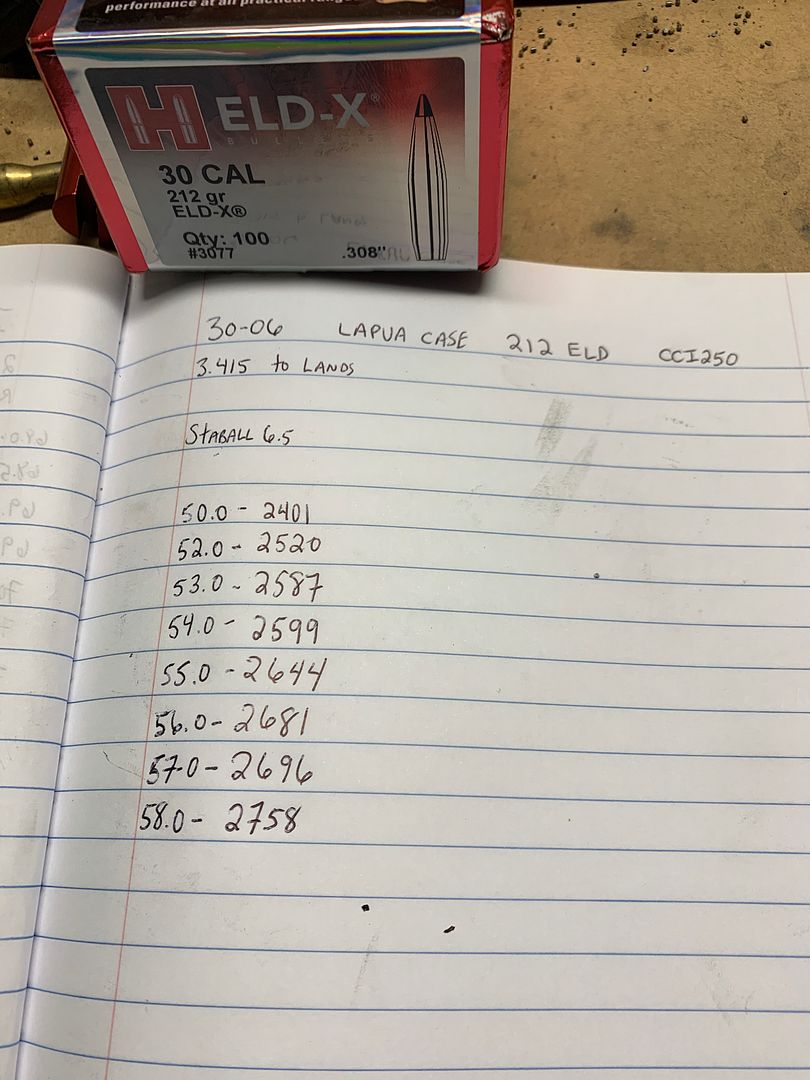 performance at all practical range
H ELD-X®
BULLETS
30 CAL
212 gr
ELD-X®
Qty: 100
#3077 .308"
30-06 LAPUA CASE 212 ELD CCI250
3.415 to LANDS
STABALL 6.5
50.0 - 2401
52.0 - 2520
53.0 - 2587
54.0 - 2599
55.0 - 2644
56.0 - 2681
57.0 - 2696
58.0 - 2758